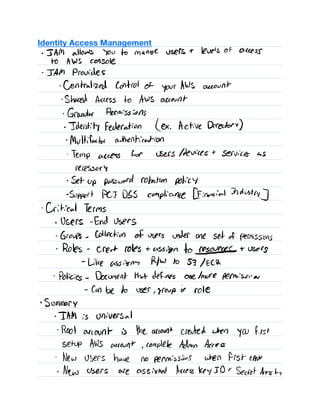 Identity Access Management
· IAM allows you to manage users + levels of access
to AWS console
· IAM Provides
· Centralized Control of your AWS account
· Shared Access to AWS account
· Granular Permissions
· Identity Federation (ex. Active Directory)
· Multifactor authentication
· Temp access for users/devices + services as
necessary
· Set up password rotation policy
- Support PCI DSS compliance [Financial Industry]
· Critical Terms
· Users - End Users
· Groups - Collection of users under one set of permissions
· Roles - create roles + assign to resources + users
- Like assigning R/W to S3/EC2
· Policies - Document that defines one/more permissions
- Can be to user, group or role
· Summary
· IAM is universal
· Root account is the account created when you first
setup AWS account, complete Admin Access
· New Users have no permissions when first created
· New users are assigned Access Key ID + Secret Access